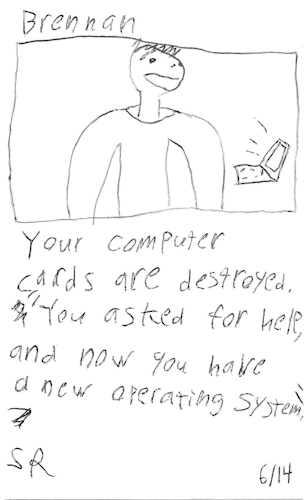 Brennan
Your computer
cards are destroyed.
You asked for help,
and now you have
a new operating system.
SR
6/14